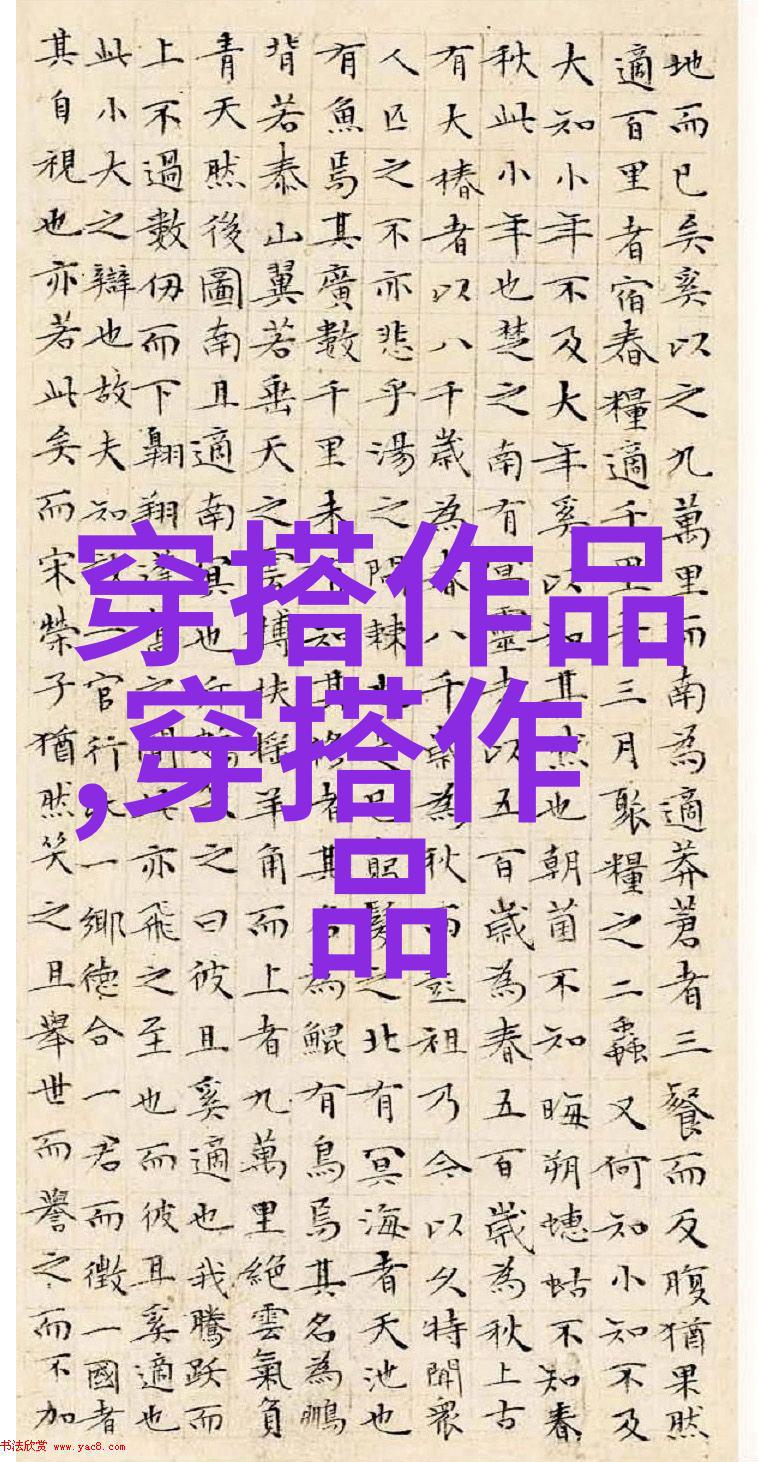 地而已矣奚以之九萬里而南為適莽蒼者三餐而反腹猶果然
適百里者宿舂糧適千里者三月聚糧之二蟲又何知小知不及
大知小年不及大年奚以知其然也朝菌不知晦朔蟪蛄不知春
秋此小年也楚之南有冥靈者以五百歲為春五百歲為秋上古
有大椿者以八千歲為春八千歲為秋而彭祖乃今以久特聞眾
人匹之不亦悲乎湯之問棘也是已髮之北有冥海者天池也
有魚焉其廣數千里未有知其修者其名為鯤有鳥焉其名為鵬
背若泰山翼若垂天之雲摶扶搖羊角而上者九萬里絕雲氣負
青天然後圖南且適南冥也斥之曰彼且奚適也我騰躍而
上不過數仞而下翱翔蓬蒿之間亦飛之至也而彼且奚適也
此小大之辯也故夫知一官行比一鄉德合一君而徵一國者
其自視也亦若此矣而宋榮子猶然笑之且舉世而譽之而不加
穿搭作品
,穿搭作
品
书法欣赏 www.yac8.com